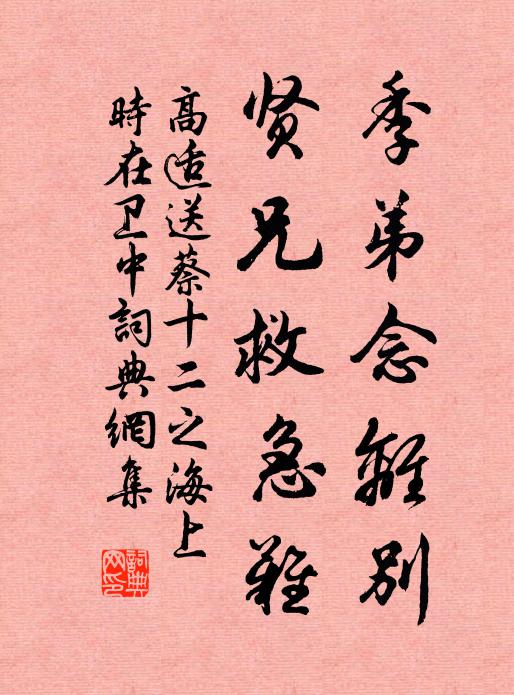 季弟念離别
贤兄救急難
高适送蔡十二之海上
時在卫中詞典網集
詞典网印